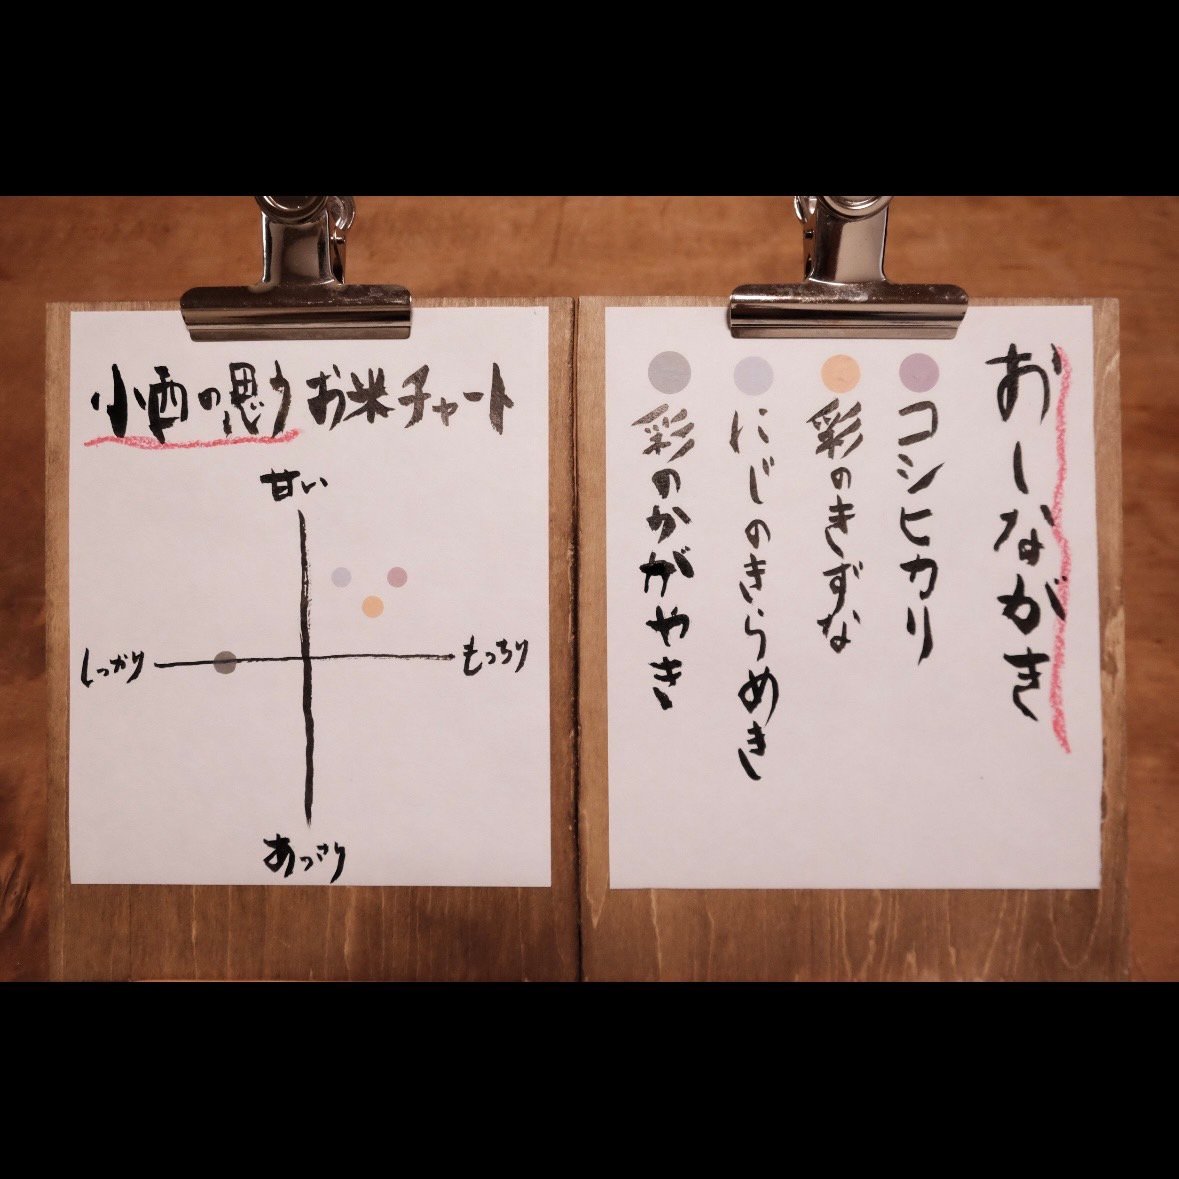 小酉の思うお米チャート
甘い
しっかり
もっちり
あっさり
おしながき
コシヒカリ
彩のきずな
にじのきらめき
彩のかがやき